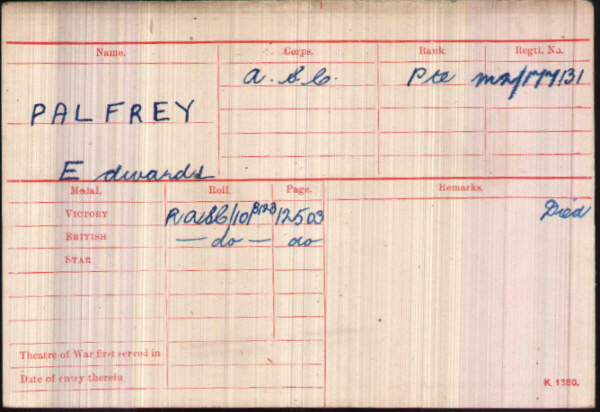 Name. Corps. Rank. Regtl. No.
A.S.C. Pte M2/177131
PALFREY
Edwards
Medal. Roll. Page. Remarks.
VICTORY RASC/101B123 12503 Died
BRITISH — do — do
STAR
Theatre of War first served in
Date of entry therein
K. 1380.